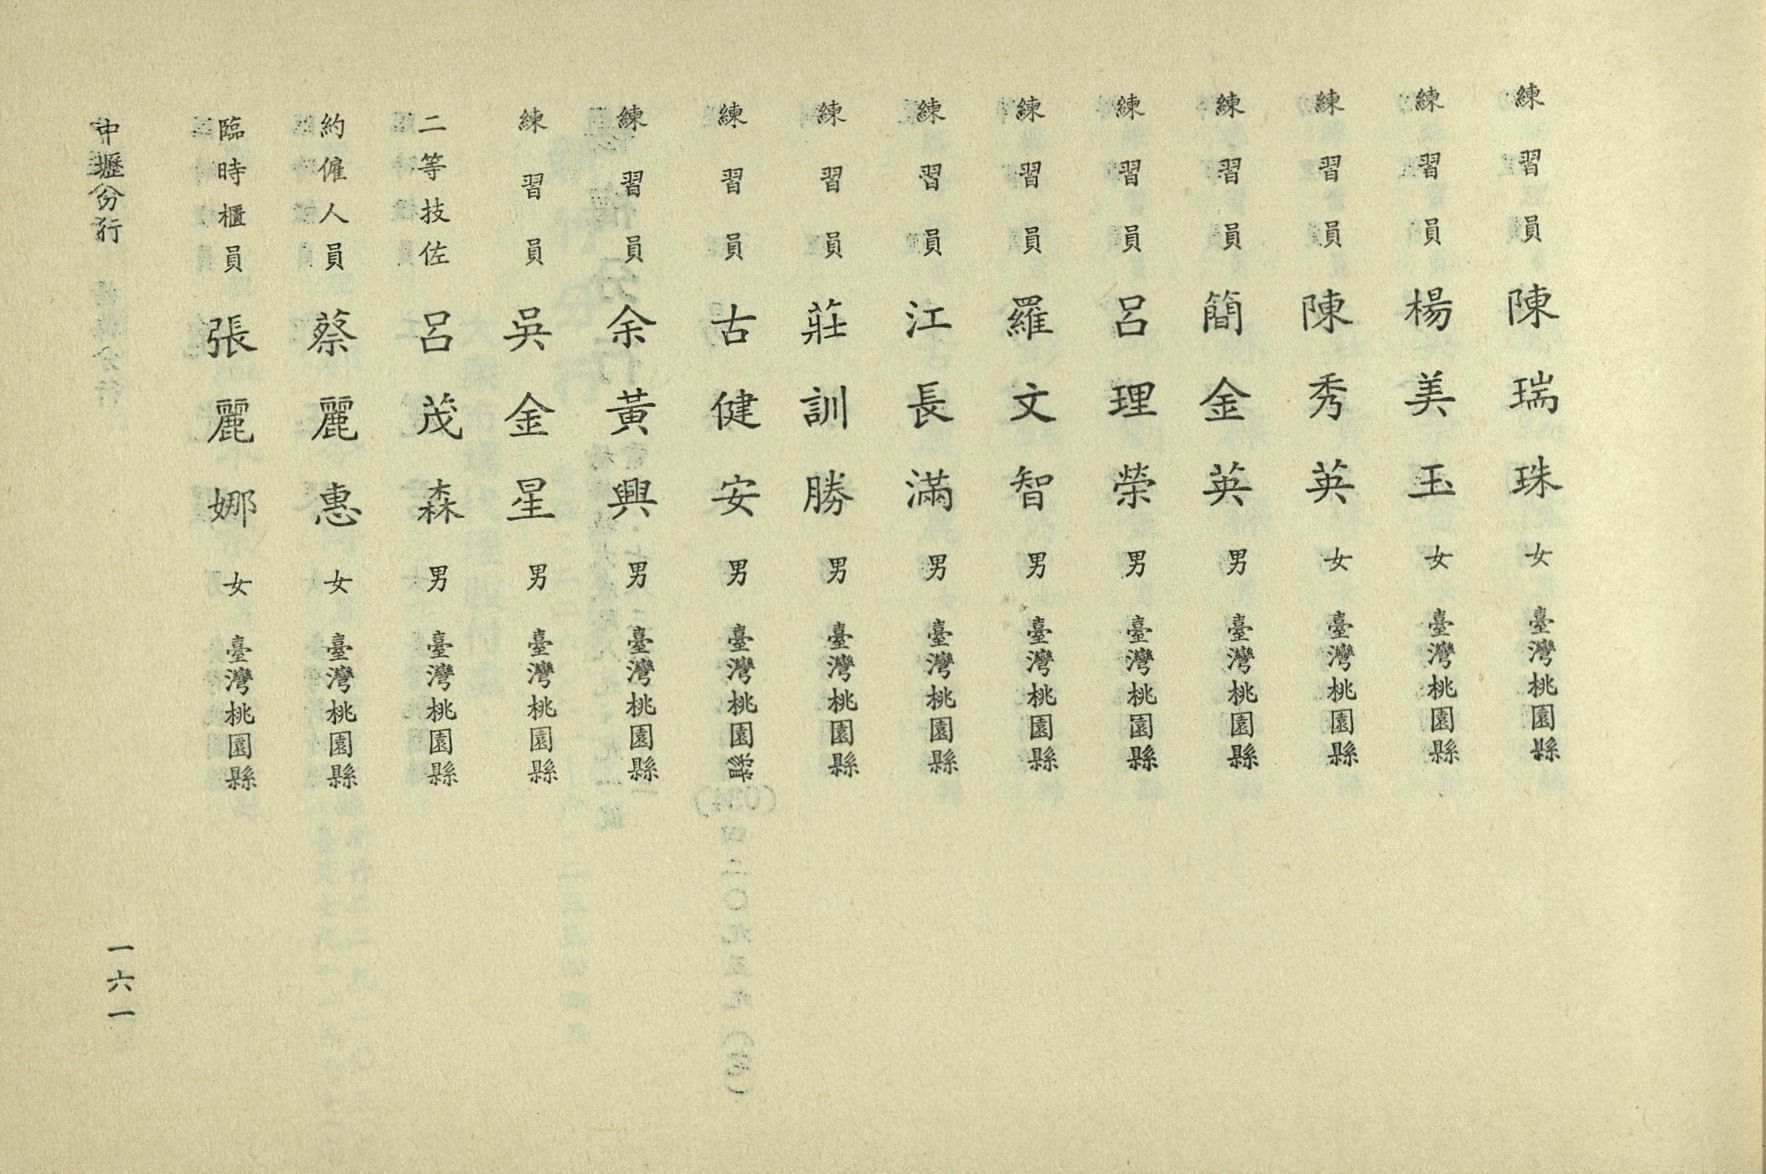 練習員 陳瑞珠 女 臺灣桃園縣
練習員 楊美玉 女 臺灣桃園縣
練習員 陳秀英 女 臺灣桃園縣
練習員 簡金英 男 臺灣桃園縣
練習員 呂理榮 男 臺灣桃園縣
練習員 羅文智 男 臺灣桃園縣
練習員 江長滿 男 臺灣桃園縣
練習員 莊訓勝 男 臺灣桃園縣
練習員 古健安 男 臺灣桃園縣
練習員 余黃興 男 臺灣桃園縣
練習員 吳金星 男 臺灣桃園縣
二等技佐 呂茂森 男 臺灣桃園縣
約僱人員 蔡麗惠 女 臺灣桃園縣
臨時櫃員 張麗娜 女 臺灣桃園縣
中壢分行
一六一